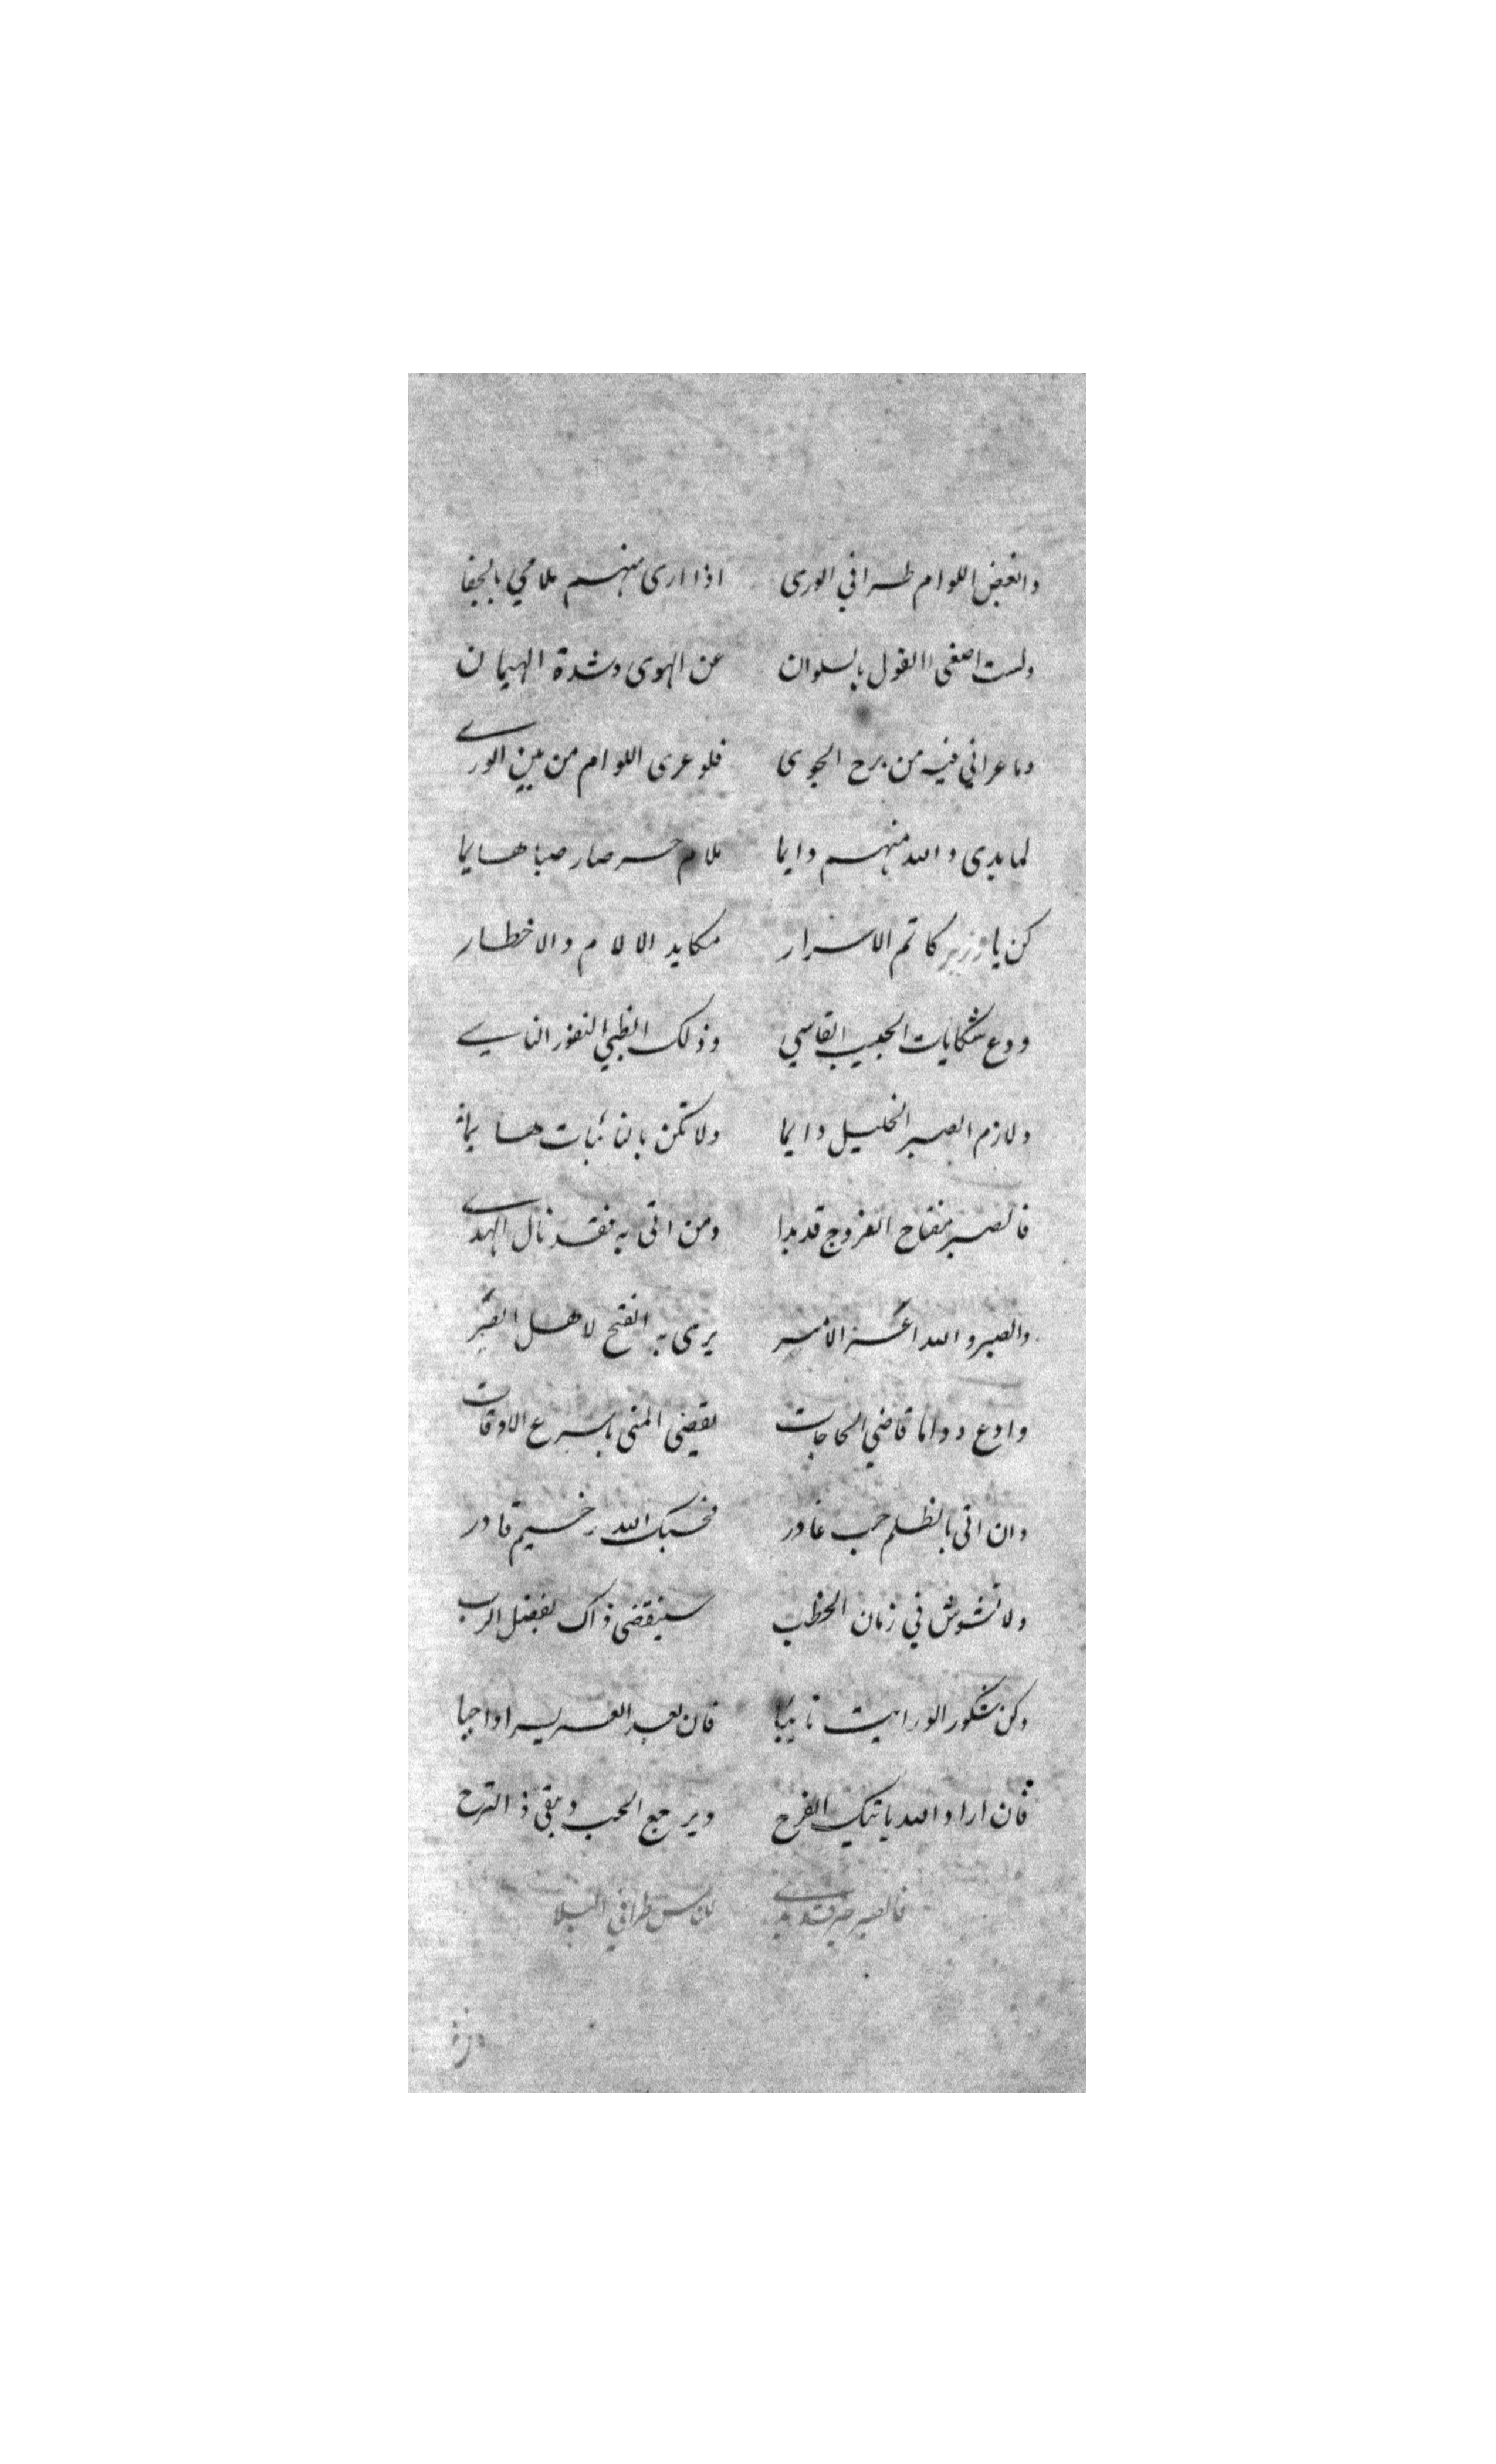 وابغض اللوام طرا في الورى اذا ارى منهم ملامي بالجفا
ولست اصغى القول بالسلوان عن الهوى وشدة الهيمان
وما عراني فيه من برح الجوى فلو عرى اللوام من بين الورى
لما بدى والله منهم دايما ملام حر صار صبا هايما
كن يا كاتم الاسرار مكايد الالام والاخطار
ودع شكايات الحبيب القاسي وذلك الظبي النفور الناسي
ولازم الصبر الجليل دايما ولا تكن بالنائبات هايما
فالصبر مفتاح الفروج قد بدا ومن اتى به فقد نال الهدى
والصبر والله اعز الامر يرى به الفتح لاهل الصبر
وادع دواما قاضي الحاجات يقضى المنى باسرع الاوقات
وان اتى بالظلم حب غادر فحسبك الله رخيم قادر
ولا تشوش في زمان الخطب سينقضى ذاك بفضل الرب
وكن شكور الو رايت نايبا فان بعد العسر يسرا واجبا
فان اراد الله ياتيك الفرح ويرجع الحب ويبقى ذ الترح
فالصبر خير للناس طرا في البلا